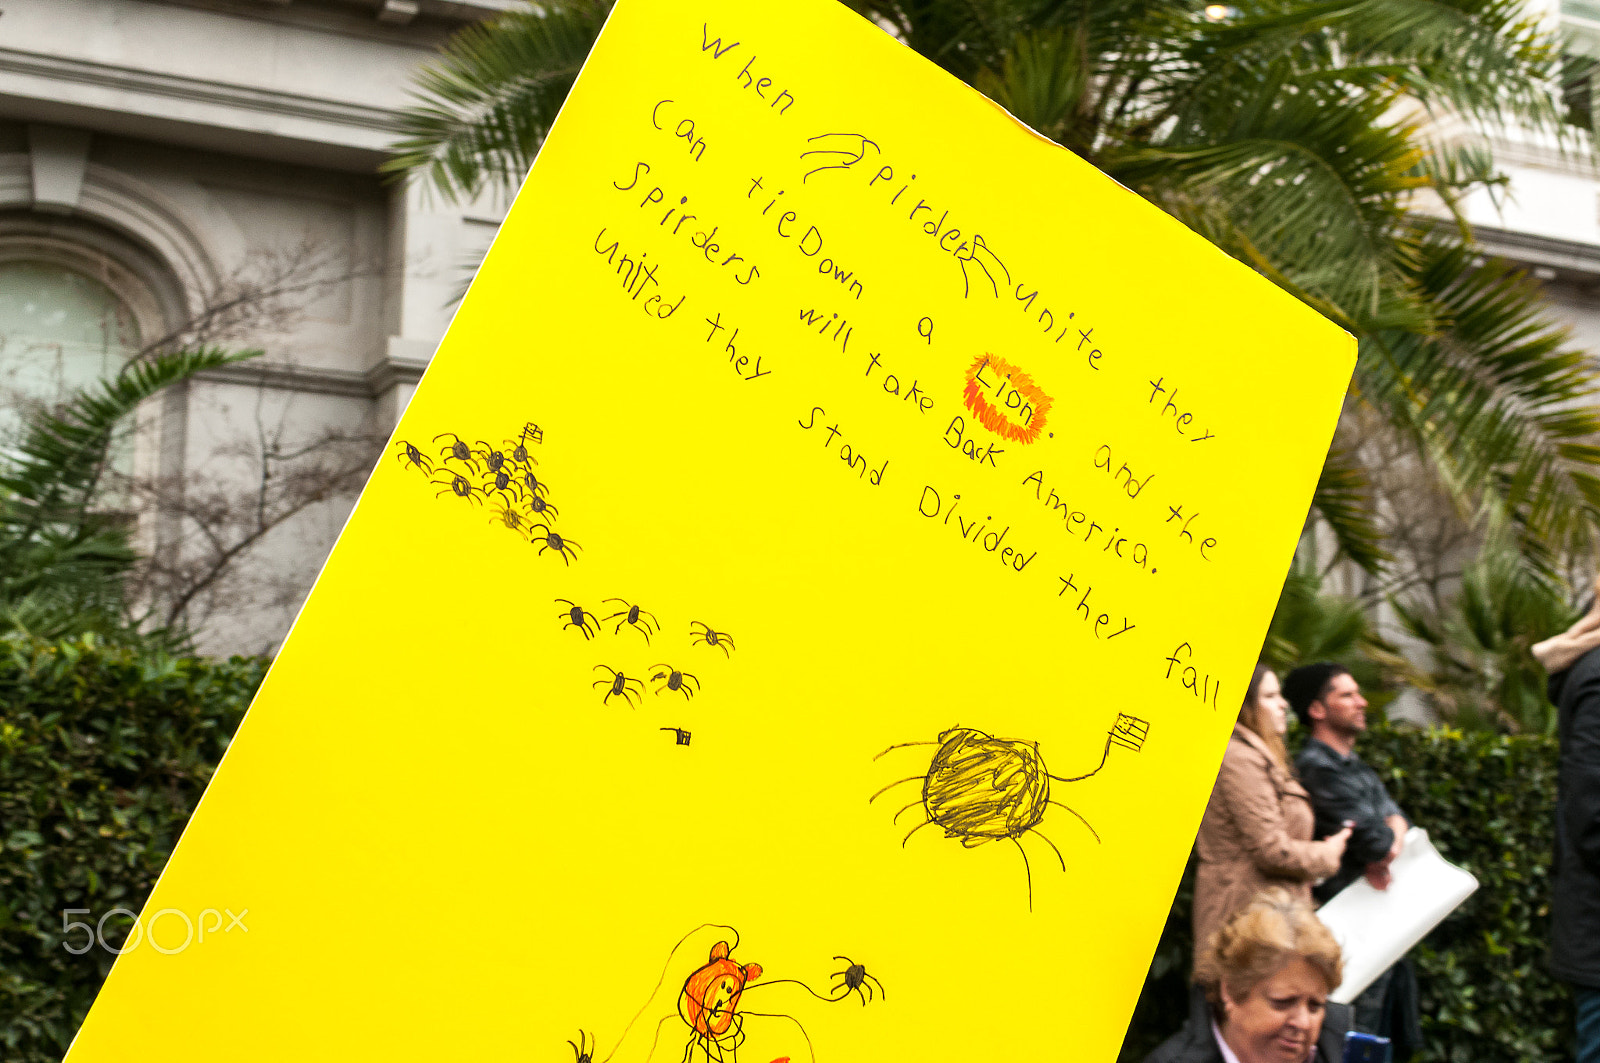 When Spirders unite they
Can tieDown a Lion. and the
Spirders will take Back America.
united they Stand Divided they fall
500px